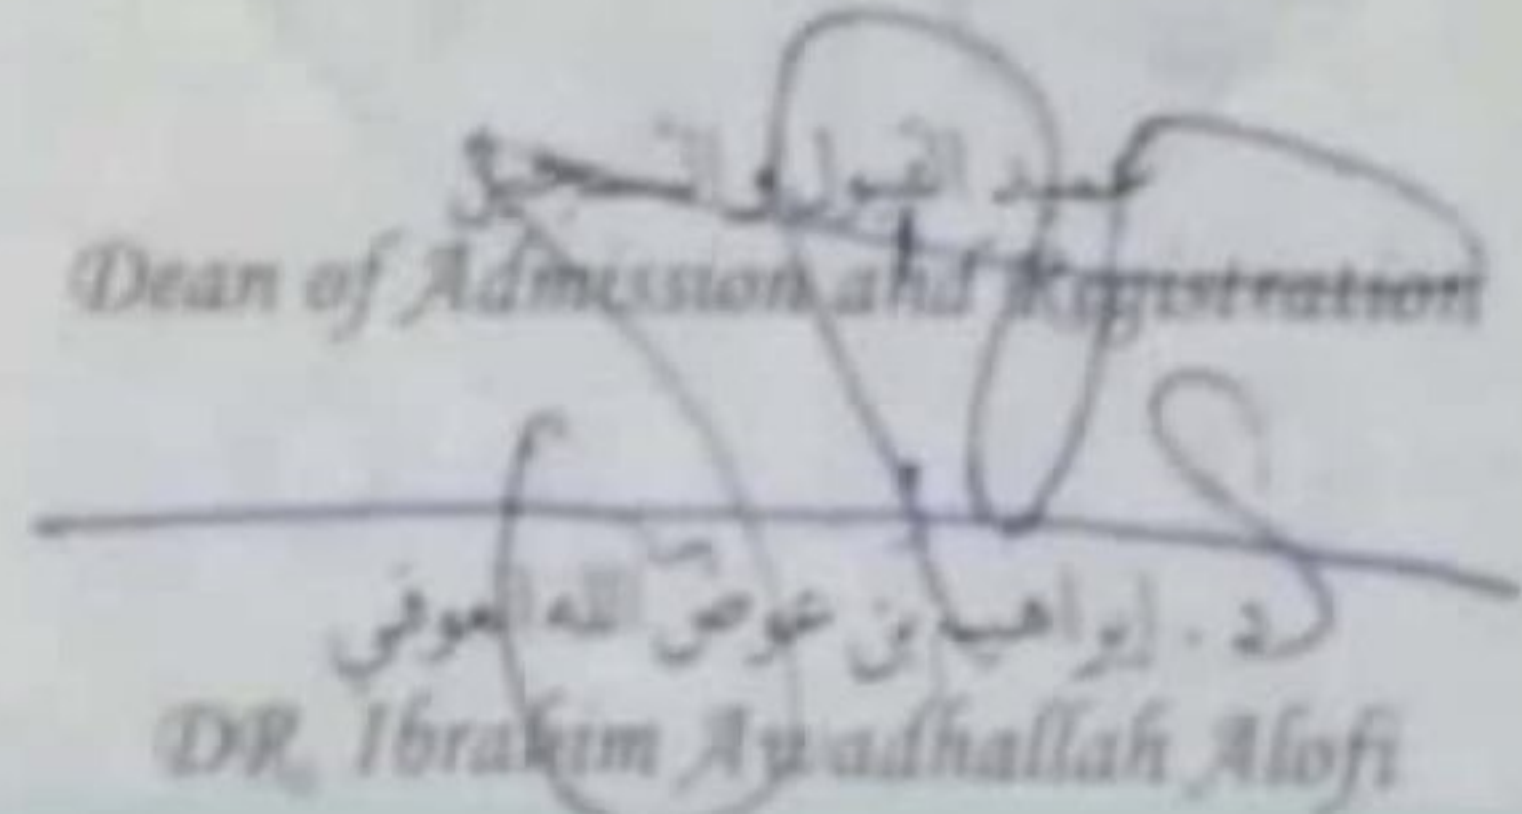 عميد القبول والتسجيل
Dean of Admission and Registration
د. إبراهيم بن عوض الله العوفي
DR. Ibrahim Awadhallah Alofi